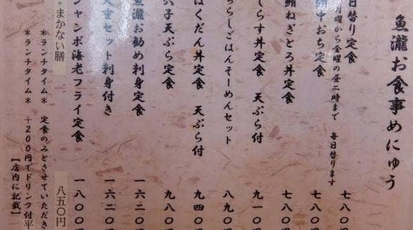 魚瀧お食事めにゅう
日替り定食 七八〇
月曜から金曜の昼二時まで 毎日替ります
中おち定食 七八〇
ねぎとろ丼定食 七八〇
しらす丼定食 天ぷら付 九一〇
らしごはんそーめんセット 八八〇
ばくだん丼定食 天ぷら付 九四〇
穴子天ぷら定食 九八〇
魚瀧お勧め刺身定食 一六二〇
天重セット刺身付き 一六二〇
ジャンボ海老フライ定食 一八〇〇
まかない膳 八五〇円
＊ランチタイム＊ 定食のみとさせていただき
＊ランチタイム＊ +200円でドリンク付
【店内に記載】